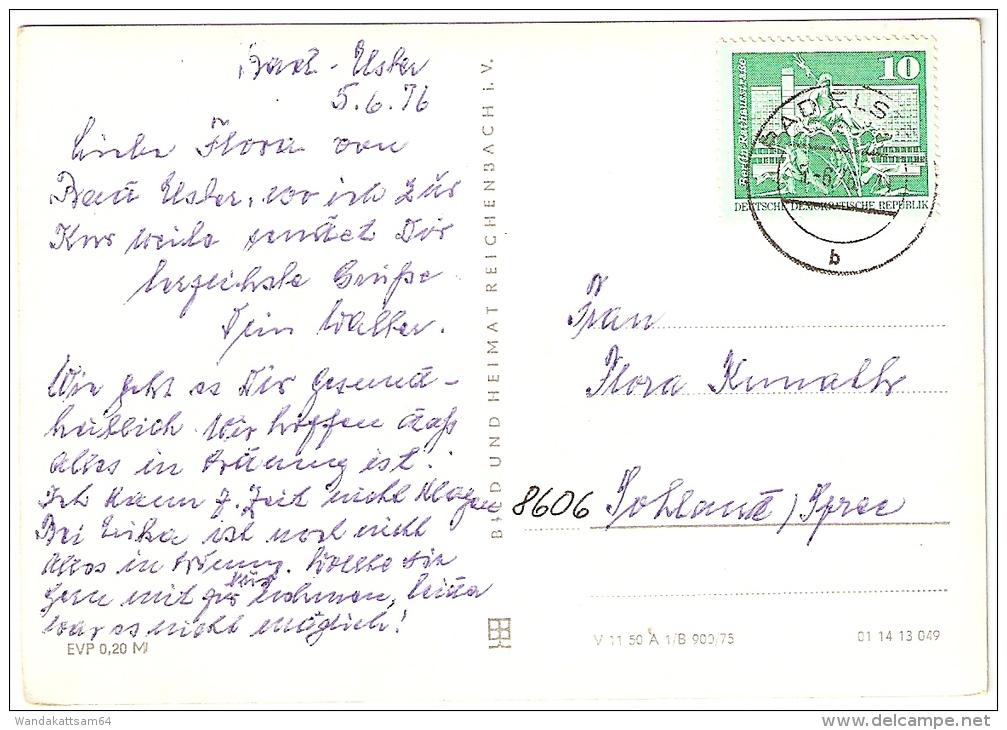 Bad-Elster
5.6.76
Liebe Flora von
Bad Elster, wo ich zur
Kur weile sendet Dir
herzlichste Grüße
Dein Walter.
Wie geht es Dir gesund-
heitlich. Wir hoffen daß
Alles in Ordnung ist.
Ich kann z. Zeit nicht klagen
Bei Erika ist noch nicht
Alles in Ordnung. Wollte sie
gern mit zur Kur nehmen, leider
war es nicht möglich!
EVP 0,20 M
BILD UND HEIMAT REICHENBACH i. V.
10
DEUTSCHE DEMOKRATISCHE REPUBLIK
BAD ELS
b
Frau
Flora Kunath
8606 Sohland/Spree
V 11 50 A 1/B 900/75
01 14 13 049
Wandakattsam64
delcampe.net